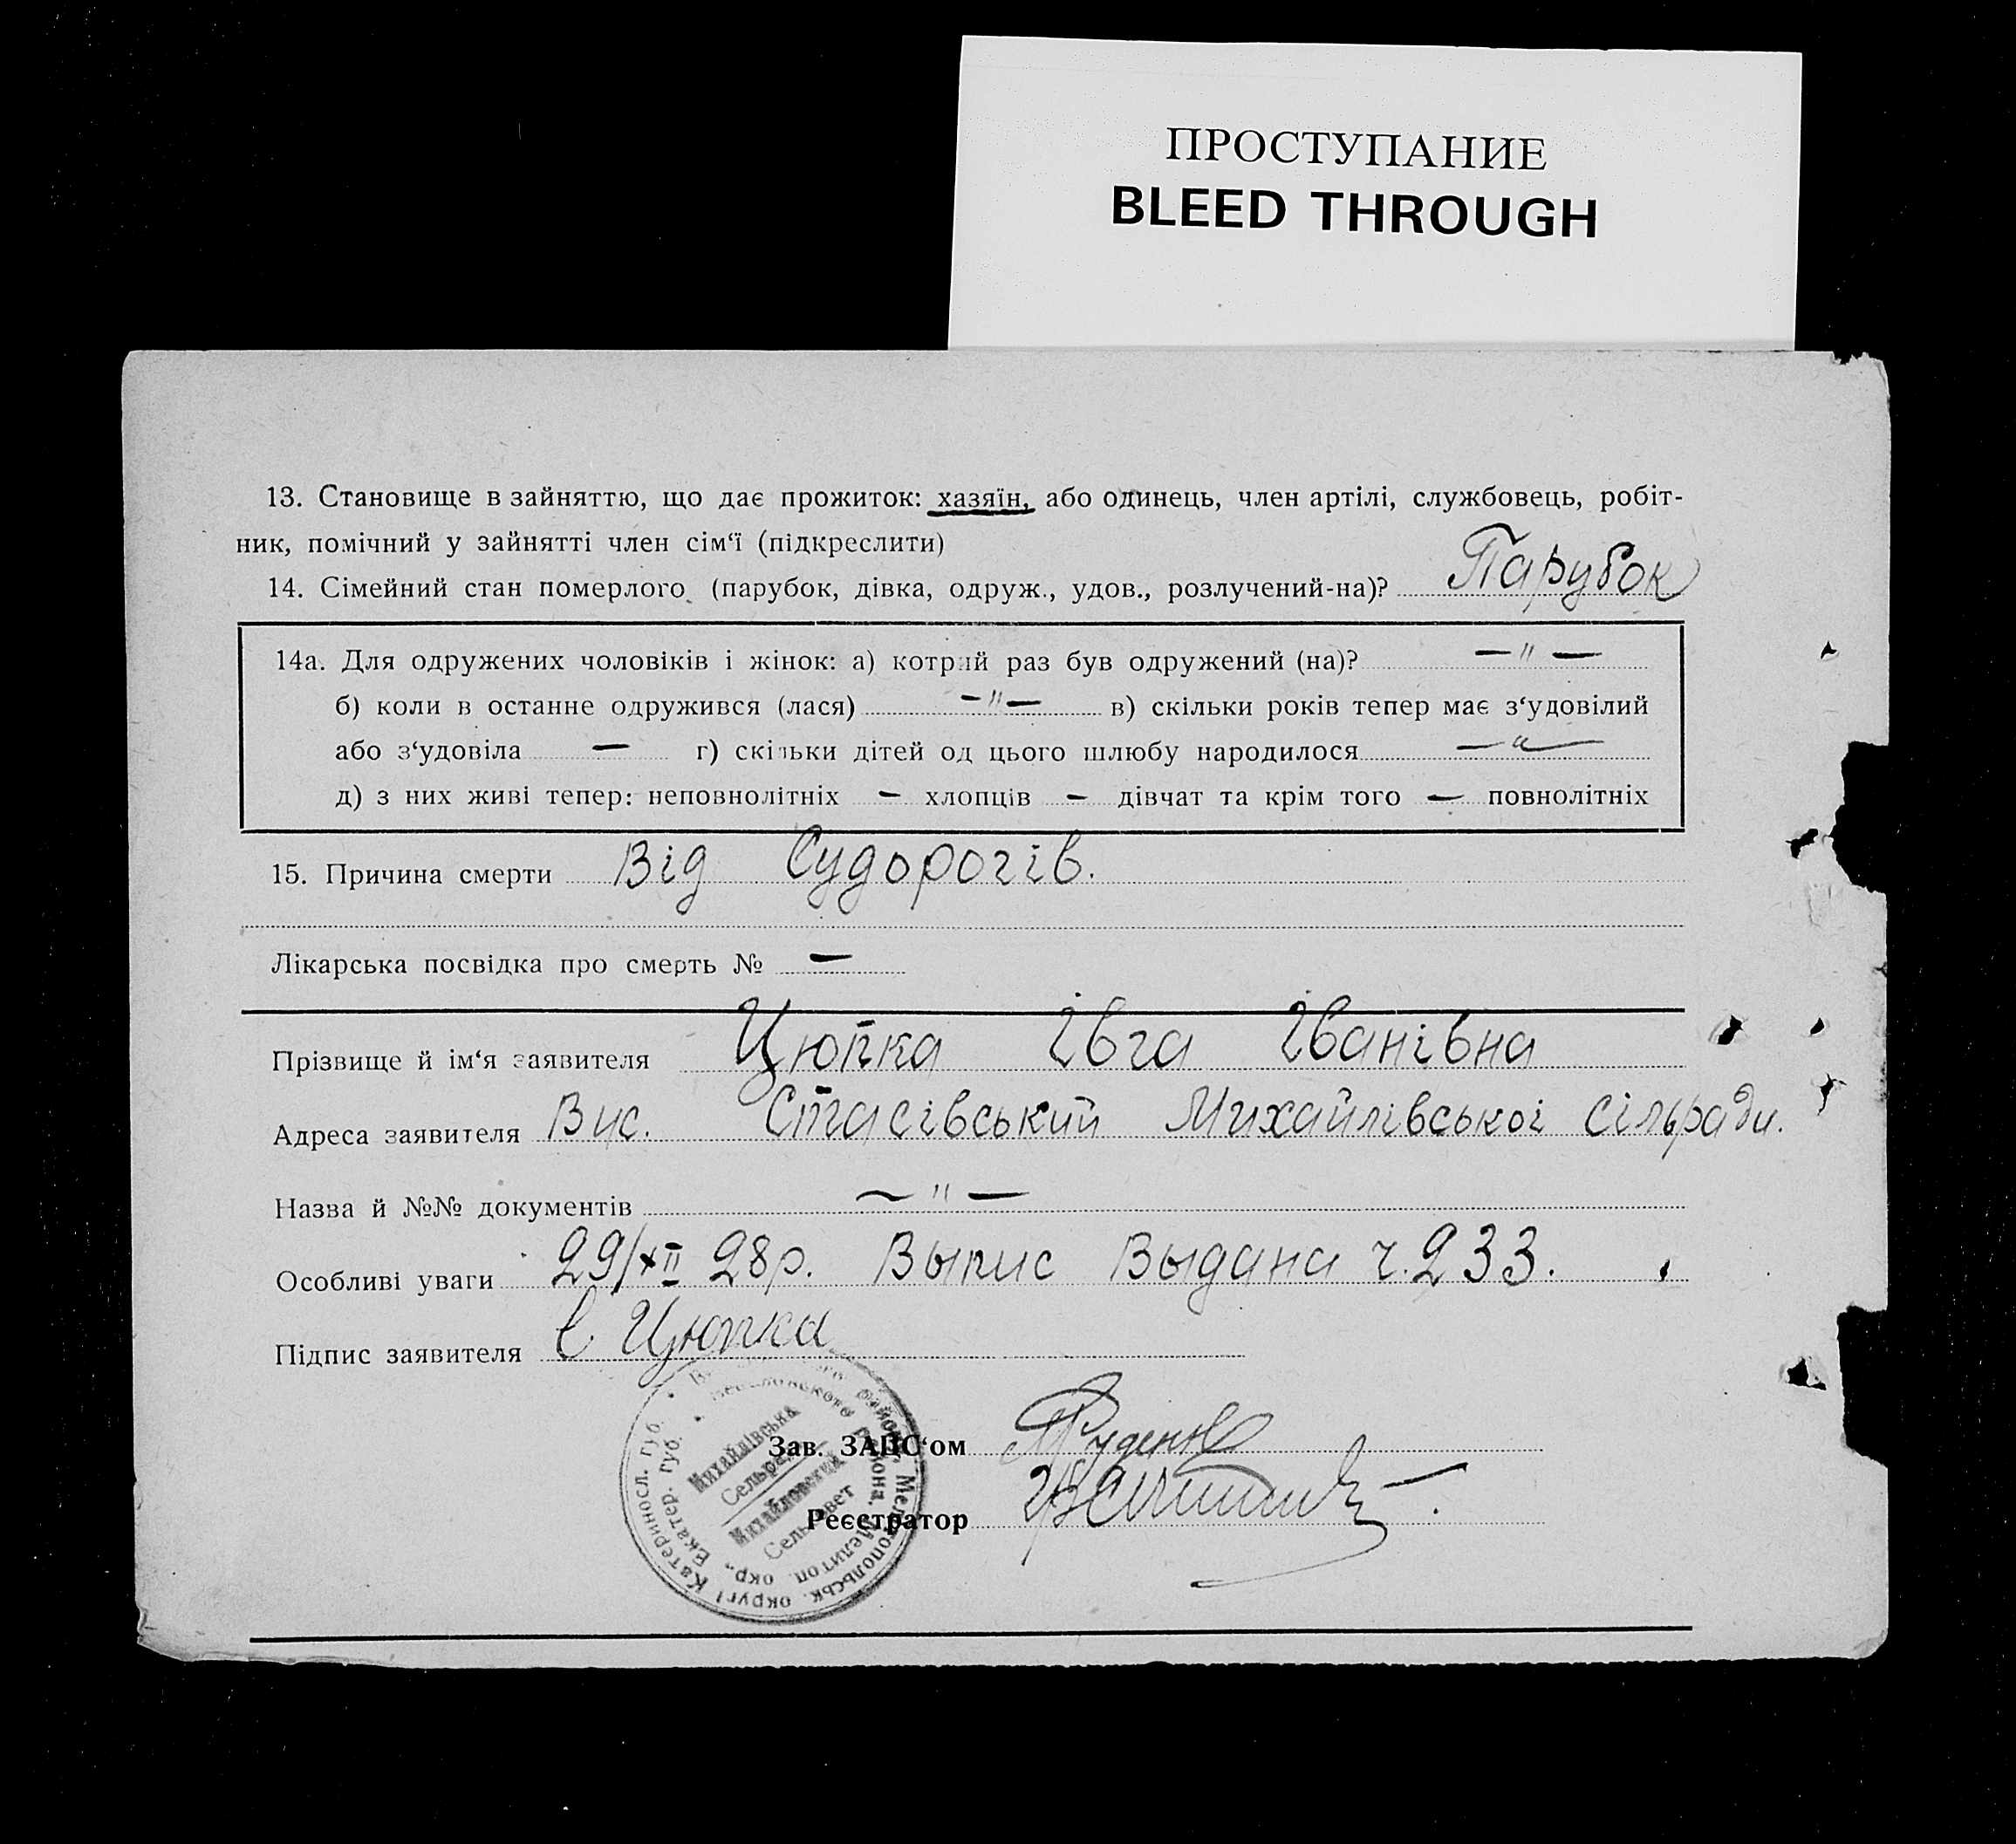 ПРОСТУПАНИЕ
BLEED THROUGH
13. Становище в зайняттю, що дає прожиток: хазяїн, або одинець, член артілі, службовець, робіт-
ник, помічний у зайнятті член сім‘ї (підкреслити)
14. Сімейний стан померлого (парубок, дівка, одруж., удов., розлучений-на)? Парубок
14а. Для одружених чоловіків і жінок: а) котрий раз був одружений (на)? — " —
б) коли в останне одружився (лася) — " — в) скільки років тепер має з‘удовілий
або з‘удовіла — г) скільки дітей од цього шлюбу народилося — " —
д) з них живі тепер: неповнолітніх — хлопців — дівчат та крім того — повнолітніх
15. Причина смерти Від Судорогів.
Лікарська посвідка про смерть № —
Прізвище й ім‘я заявителя Цюпка Івга Іванівна
Адреса заявителя Вис. Стасівський Михайлівської сільради.
Назва й №№ документів — " —
Особливі уваги 29/XII 28р. Выпис Выдана ч. 233.
Підпис заявителя Цюпка
Зав. ЗАГС‘ом Руденко
Реєстратор
Михайлівська
Сельрада
Михайловский
Сельсовет
Мелітопольськ. округі Катериносл. губ.
Района. Мелитоп. окр. Екатер. губ.